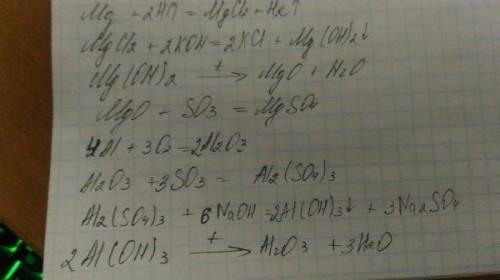 Mg + 2HCl = MgCl2 + H2↑
MgCl2 + 2KOH = 2KCl + Mg(OH)2↓
Mg(OH)2 t→ MgO + H2O
MgO + SO3 = MgSO4
4Al + 3O2 = 2Al2O3
Al2O3 + 3SO3 = Al2(SO4)3
Al2(SO4)3 + 6NaOH = 2Al(OH)3↓ + 3Na2SO4
2Al(OH)3 t→ Al2O3 + 3H2O